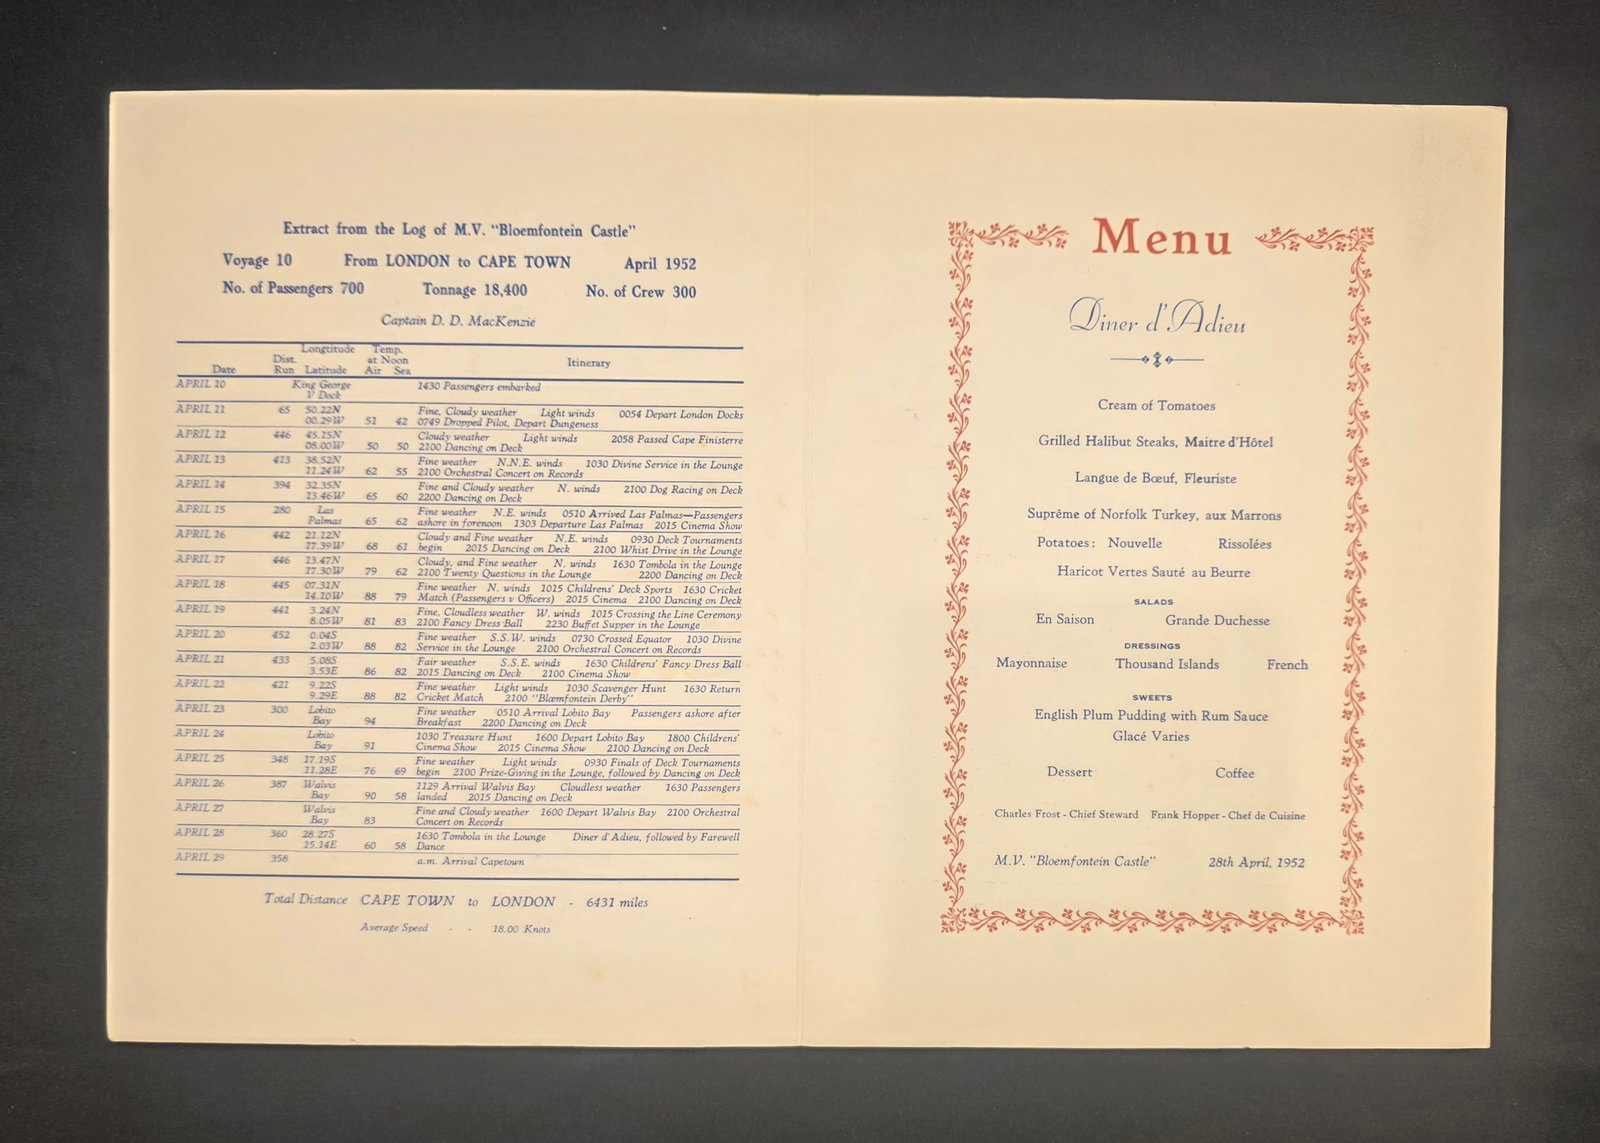 Extract from the Log of M.V. "Bloemfontein Castle"
Voyage 10 From LONDON to CAPE TOWN April 1952
No. of Passengers 700 Tonnage 18,400 No. of Crew 300
Captain D. D. MacKenzie
Longtitude Temp.
Dist. at Noon Itinerary
Date Run Latitude Air Sea
APRIL 10 King George 1430 Passengers embarked
V Dock
APRIL 11 65 50.22N Fine, Cloudy weather Light winds 0054 Depart London Docks
00.29W 51 42 0749 Dropped Pilot, Depart Dungeness
APRIL 12 446 45.15N Cloudy weather Light winds 2058 Passed Cape Finisterre
08.00W 50 50 2100 Dancing on Deck
APRIL 13 413 38.52N Fine weather N.N.E. winds 1030 Divine Service in the Lounge
11.24W 62 55 2100 Orchestral Concert on Records
APRIL 14 394 32.35N Fine and Cloudy weather N. winds 2100 Dog Racing on Deck
13.46W 65 60 2200 Dancing on Deck
APRIL 15 280 Las Fine weather N.E. winds 0510 Arrived Las Palmas—Passengers
Palmas 65 62 ashore in forenoon 1303 Departure Las Palmas 2015 Cinema Show
APRIL 16 442 21.12N Cloudy and Fine weather N.E. winds 0930 Deck Tournaments
17.39W 68 61 begin 2015 Dancing on Deck 2100 Whist Drive in the Lounge
APRIL 17 446 13.47N Cloudy, and Fine weather N. winds 1630 Tombola in the Lounge
17.30W 79 62 2100 Twenty Questions in the Lounge 2200 Dancing on Deck
APRIL 18 445 07.31N Fine weather N. winds 1015 Childrens' Deck Sports 1630 Cricket
14.10W 88 79 Match (Passengers v Officers) 2015 Cinema 2100 Dancing on Deck
APRIL 19 441 3.24N Fine, Cloudless weather W. winds 1015 Crossing the Line Ceremony
8.05W 81 83 2100 Fancy Dress Ball 2230 Buffet Supper in the Lounge
APRIL 20 452 0.04S Fine weather S.S.W. winds 0730 Crossed Equator 1030 Divine
2.03W 88 82 Service in the Lounge 2100 Orchestral Concert on Records
APRIL 21 433 5.08S Fair weather S.S.E. winds 1630 Childrens' Fancy Dress Ball
3.53E 86 82 2015 Dancing on Deck 2100 Cinema Show
APRIL 22 421 9.22S Fine weather Light winds 1030 Scavenger Hunt 1630 Return
9.29E 88 82 Cricket Match 2100 "Blœmfontein Derby"
APRIL 23 300 Lobito Fine weather 0510 Arrival Lobito Bay Passengers ashore after
Bay 94 Breakfast 2200 Dancing on Deck
APRIL 24 Lobito 1030 Treasure Hunt 1600 Depart Lobito Bay 1800 Childrens'
Bay 91 Cinema Show 2015 Cinema Show 2100 Dancing on Deck
APRIL 25 348 17.19S Fine weather Light winds 0930 Finals of Deck Tournaments
11.28E 76 69 begin 2100 Prize-Giving in the Lounge, followed by Dancing on Deck
APRIL 26 387 Walvis 1129 Arrival Walvis Bay Cloudless weather 1630 Passengers
Bay 90 58 landed 2015 Dancing on Deck
APRIL 27 Walvis Fine and Cloudy weather 1600 Depart Walvis Bay 2100 Orchestral
Bay 83 Concert on Records
APRIL 28 360 28.27S 1630 Tombola in the Lounge Diner d'Adieu, followed by Farewell
15.14E 60 58 Dance
APRIL 29 358 a.m. Arrival Capetown
Total Distance CAPE TOWN to LONDON - 6431 miles
Average Speed - - 18.00 Knots
Menu
Diner d'Adieu
Cream of Tomatoes
Grilled Halibut Steaks, Maitre d'Hôtel
Langue de Bœuf, Fleuriste
Suprême of Norfolk Turkey, aux Marrons
Potatoes: Nouvelle Rissolées
Haricot Vertes Sauté au Beurre
SALADS
En Saison Grande Duchesse
DRESSINGS
Mayonnaise Thousand Islands French
SWEETS
English Plum Pudding with Rum Sauce
Glacé Varies
Dessert Coffee
Charles Frost - Chief Steward Frank Hopper - Chef de Cuisine
M.V. "Bloemfontein Castle" 28th April, 1952